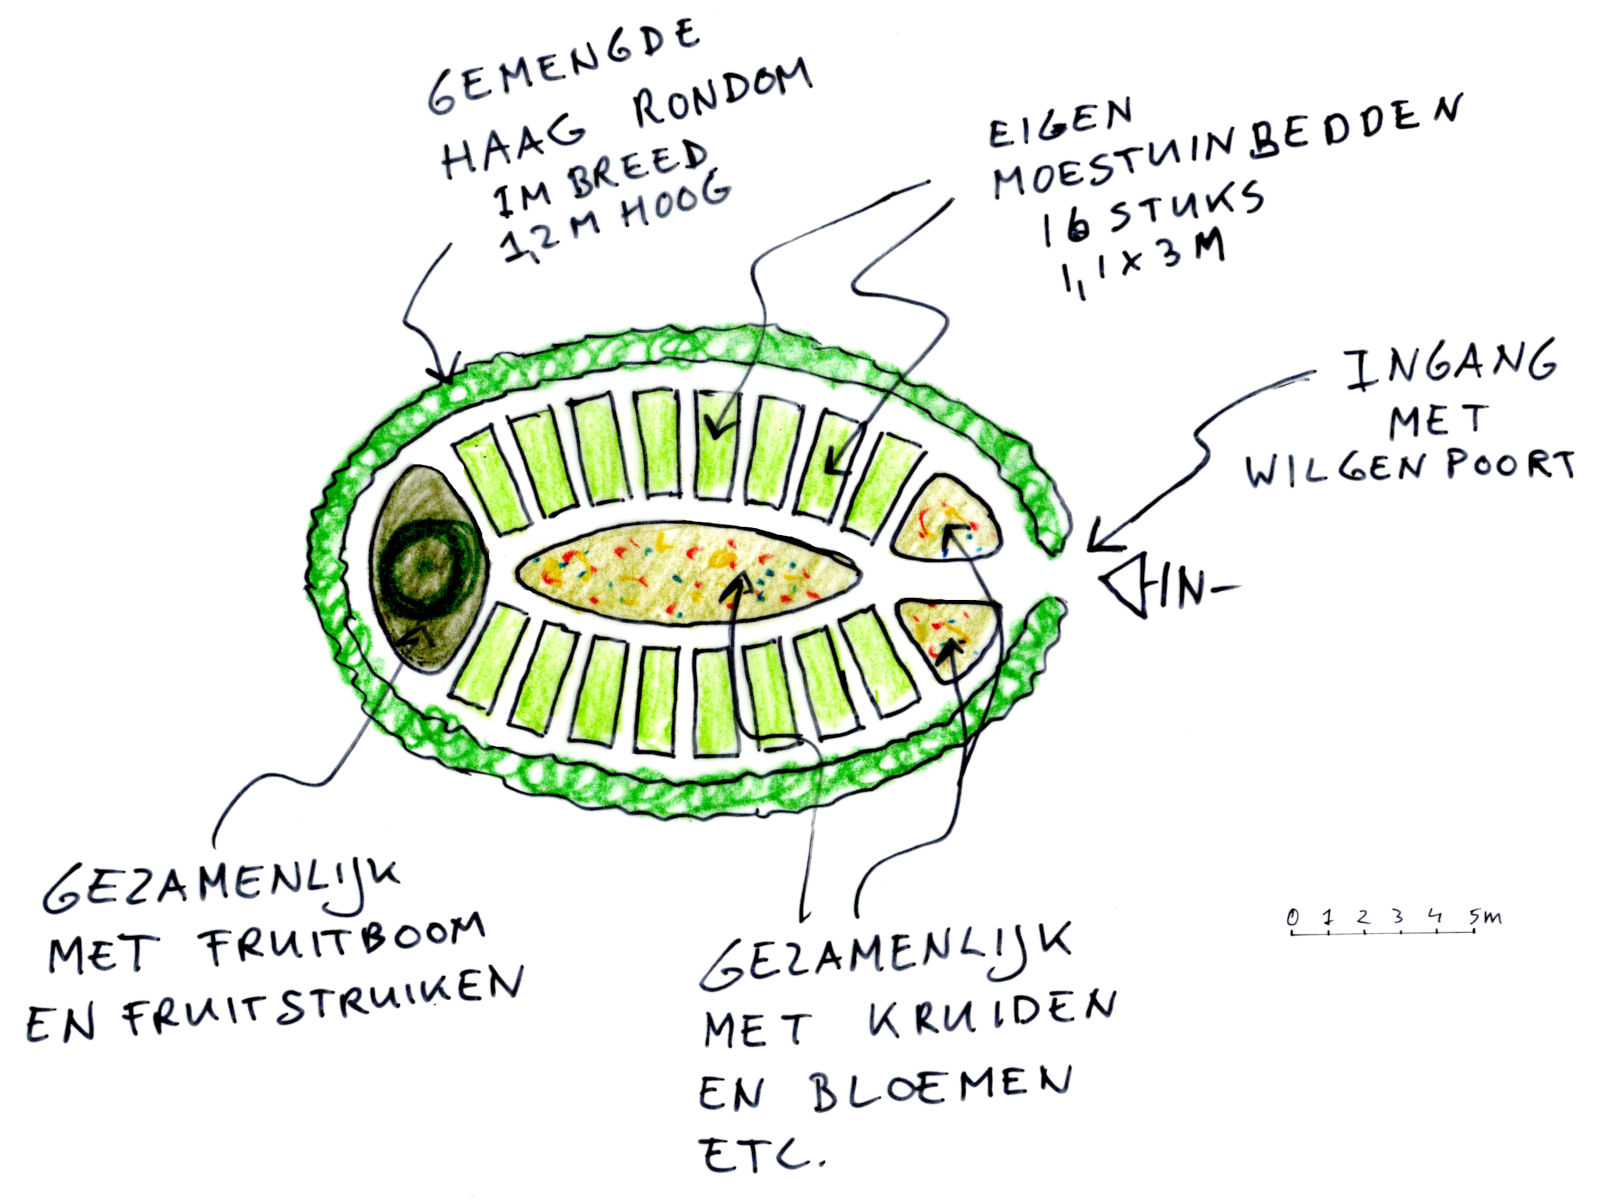 GEMENGDE
HAAG RONDOM
1M BREED
1,2 M HOOG
EIGEN
MOESTUINBEDDEN
16 STUKS
1,1 X 3 M
INGANG
MET
WILGENPOORT
IN
GEZAMENLIJK
MET FRUITBOOM
EN FRUITSTRUIKEN
GEZAMENLIJK
MET KRUIDEN
EN BLOEMEN
ETC.
0 1 2 3 4 5m